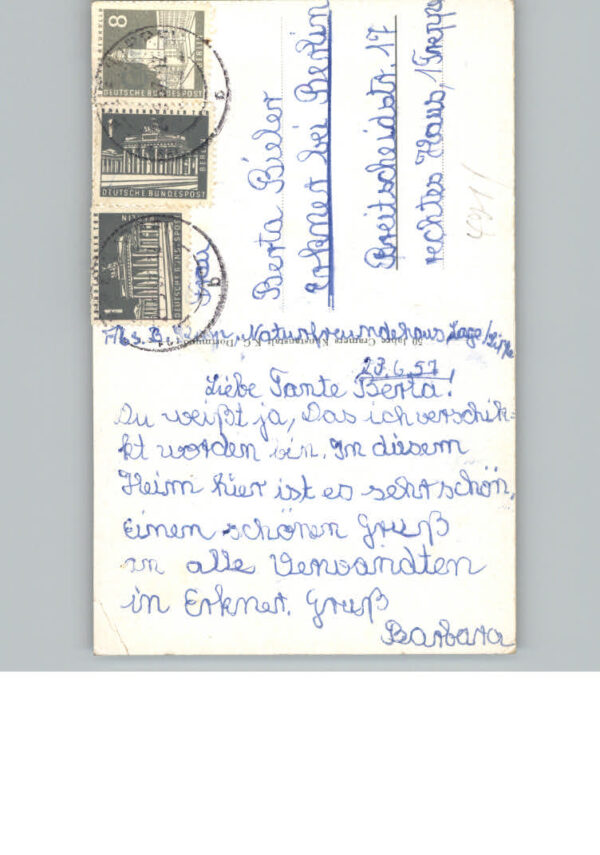 8
DEUTSCHE BUNDESPOST
BERLIN
1
DEUTSCHE BUNDESPOST
BERLIN
1
DEUTSCHE BUNDESPOST
Frau
Berta Bieler
Erkner bei Berlin
Breitscheidstr. 17
rechtes Haus, 1 Treppe
Abs. B. Naturfreundehaus, Lage/Lippe
50 Jahre Cramers Kunstanstalt K.G., Dortmund
23.6.57
Liebe Tante Berta!
Du weißt ja, Das ich verschik-
kt worden bin. In diesem
Heim hier ist es sehr schön.
Einen schönen Gruß
an alle Verwandten
in Erkner. Gruß
Barbara